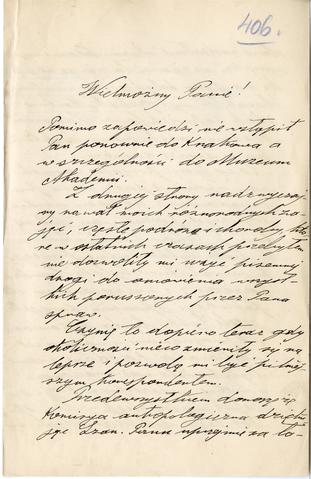 406.
Wielmożny Panie!
Pomimo zapowiedzi nie wstąpił
Pan ponownie do Krakowa a
w szczególności do Muzeum
Akademii.
Z drugiej strony nadzwyczaj
ny nawał moich różnorodnych za-
jęć, częste podróże i choroby, któ-
re w ostatnich czasach przebyłem
nie dozwoliły mi wejść pisemną
drogą do omówienia wszyst-
kich poruszonych przez Pana
spraw.
Czynię to dopiero teraz gdy
okoliczności nieco zmieniły się na
lepsze i pozwolą mi być pilniej-
szym korespondentem.
Przedewszystkiem donoszę iż
Komisya antropologiczna dzięku-
je Szan. Panu uprzejmie za